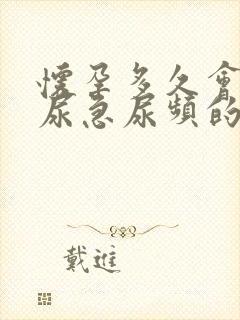 懷孕多久會
尿急尿頻的
戴進